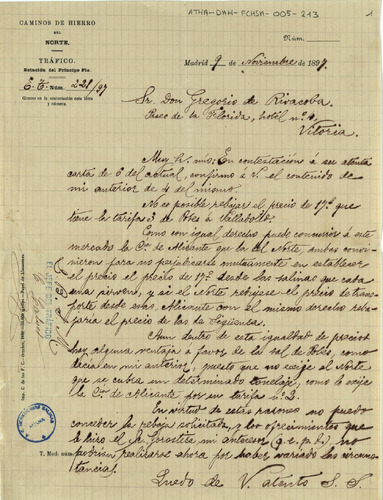 ATHA-DAH-FCHSA-005-213
1
CAMINOS DE HIERRO
DEL
NORTE.
TRÁFICO.
Estación del Príncipe Pío.
E. T. Núm. 221/97
Núm.
Madrid 9 de Noviembre de 1897.
Sr. Don Gregorio de Rivacoba
Paseo de la Florida, hotel nº
Vitoria.
Muy Sr. mio: En contestación a su atenta
carta de 6 del actual, confirmo á V. el contenido de
mi anterior de 4 del mismo.
No es posible rebajar el precio de 17 que
tiene la tarifa 3 de Poles á Valladolid.
Como con igual derecho puede concurrir á este
mercado la Cª de Alicante que la del Norte, ambas convi-
nieron para no perjudicarse mutuamente en establecer
el precio el precio de 17 desde las salinas que cada
una sirven, y si el Norte rebajase el precio de trans-
porte desde esas, Alicante con el mismo derecho reba-
jaria el precio de las de Sigüenza.
Aun dentro de esta igualdad de precios
hay alguna ventaja á favor de la sal de Poles, como
decia en mi anterior, puesto que no exige el Norte
que se cubra un determinado tonelaje, como lo exije
la Cª de Alicante por su tarifa nº 2.
En virtud de estas razones no puedo
conceder la rebaja solicitada, y los ofrecimientos que
le hizo el Sr. mi antecesor (q.e.p.d.) no
podrian realizarse ahora por haber variado las circuns-
tancias.
Quedo de V. atento S. S.
EL JEFE DEL TRÁFICO
7. Mod. núm.